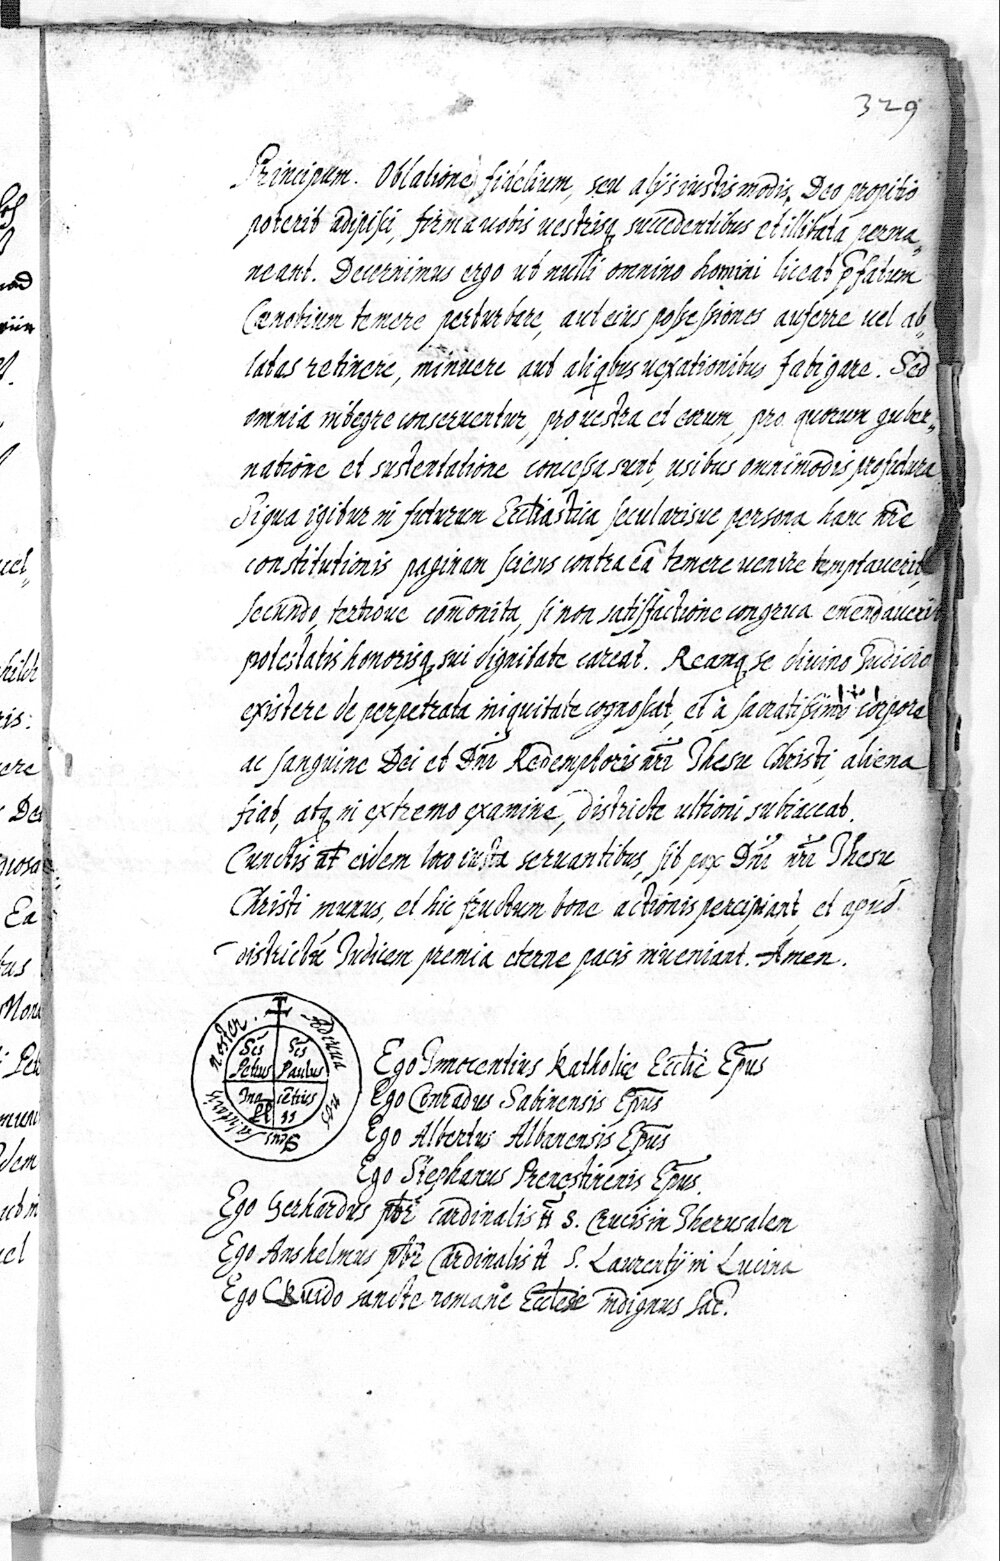 329
Principum. Oblatione fidelium, seu alijs iustis modis, Deo propitio
poterit adipisi, firma uobis uestrisq succedentibus et illibata perma„
neant. Decernimus ergo ut nulli omnino homini liceat p̄fatum
Cænobium temere perturbare, aut eius possessiones auferre uel ab„
latas retinere, minuere aut aliqbus uexationibus fatigare. Sed
omnia integre conseruentur, pro uestra et eorum, pro quorum guber„
natione et sustentatione concessa sunt, usibus omnimodis profutura
Siqua igitur in futurum Ecctiastica secularisue persona hanc nr̄e
constitutionis paginam sciens contra eā temere uenire temptauerit,
secundo, tertioue com̄onita, si non satisfactione congrua emendauerit
potestatis honorisq sui dignitate careat. Reamq se diuino Judicio
existere de perpetrata iniquitate cognoscat, et à sacratissimo corpore
ac sanguine Dei et Dn̄i Redemptoris nr̄i Jhesu Christi, aliena
fiat, atq in extremo examine, districte ultioni subiaceat.
Cunctis at̄ eidem loco iusta seruantibus, sit pax Dn̄i nr̄i Jhesu
Christi munus, et hic fructum bone actionis percipiant, et apud
districtū Judicem premia eterne pacis inueniant. Amen.
Adiuua nos Deus salutaris noster.
Sc̄s Petrus Sc̄s Paulus
Inno cētius
PP II
Ego Innocentius Katholice Ecctie Ep̄us
Ego Conradus Sabinensis Ep̄us
Ego Albertus Albanensis Ep̄us
Ego Stephanus Prenestinenis Ep̄us.
Ego Gerhardus pbr̄ cardinalis tt̄ S. Crucis in Jherusalem
Ego Anshelmus pbr̄ Cardinalis tt̄ S. Laurentij in Lucina
Ego Guido sancte romane Ecclesie indignus sac̄.